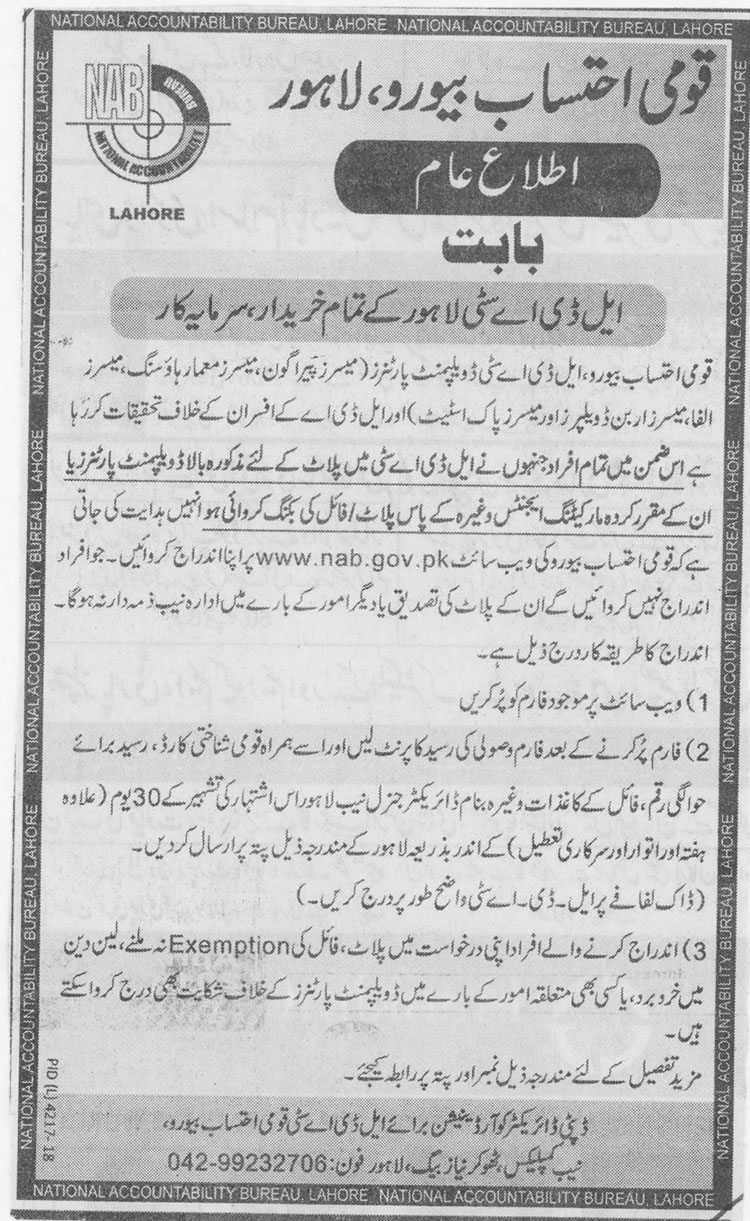 NATIONAL ACCOUNTABILITY BUREAU, LAHORE NATIONAL ACCOUNTABILITY BUREAU, LAHORE
NAB
BUREAU
NATIONAL ACCOUNTABILITY
LAHORE
قومی احتساب بیورو، لاہور
اطلاع عام
بابت
ایل ڈی اے سٹی لاہور کے تمام خریدار، سرمایہ کار
قومی احتساب بیورو، ایل ڈی اے سٹی ڈویلپمنٹ پارٹنرز (میسرز پیراگون، میسرز معمار ہاؤسنگ، میسرز
الفا، میسرز اربن ڈویلپرز اور میسرز پاک اسٹیٹ) اور ایل ڈی اے کے افسران کے خلاف تحقیقات کر رہا
ہے اس ضمن میں تمام افراد جنہوں نے ایل ڈی اے سٹی میں پلاٹ کے لئے مذکورہ بالا ڈویلپمنٹ پارٹنرز یا
ان کے مقرر کردہ مارکیٹنگ ایجنٹس وغیرہ کے پاس پلاٹ/فائل کی بکنگ کروائی ہو انہیں ہدایت کی جاتی
ہے کہ قومی احتساب بیورو کی ویب سائٹ www.nab.gov.pk پر اپنا اندراج کروائیں۔ جو افراد
اندراج نہیں کروائیں گے ان کے پلاٹ کی تصدیق یا دیگر امور کے بارے میں ادارہ نیب ذمہ دار نہ ہوگا۔
اندراج کا طریقہ کار درج ذیل ہے۔
1) ویب سائٹ پر موجود فارم کو پُر کریں
2) فارم پُر کرنے کے بعد فارم وصولی کی رسید کا پرنٹ لیں اور اسے ہمراہ قومی شناختی کارڈ، رسید برائے
حوالگی رقم، فائل کے کاغذات وغیرہ بنام ڈائریکٹر جنرل نیب لاہور اس اشتہار کی تشہیر کے 30 یوم (علاوہ
ہفتہ اور اتوار اور سرکاری تعطیل) کے اندر بذریعہ لاہور کے مندرجہ ذیل پتہ پر ارسال کر دیں۔
(ڈاک لفافے پر ایل۔ڈی۔اے سٹی واضح طور پر درج کریں۔)
3) اندراج کرنے والے افراد اپنی درخواست میں پلاٹ، فائل کی Exemption نہ ملنے، لین دین
میں خرد برد، یا کسی بھی متعلقہ امور کے بارے میں ڈویلپمنٹ پارٹنرز کے خلاف شکایت بھی درج کروا سکتے
ہیں۔
مزید تفصیل کے لئے مندرجہ ذیل نمبر اور پتہ پر رابطہ کیجئے۔
ڈپٹی ڈائریکٹر کوآرڈینیشن برائے ایل ڈی اے سٹی قومی احتساب بیورو،
نیب کمپلیکس، ٹھوکر نیاز بیگ، لاہور فون: 042-99232706
PID (L) 4217-18
NATIONAL ACCOUNTABILITY BUREAU, LAHORE NATIONAL ACCOUNTABILITY BUREAU, LAHORE
NATIONAL ACCOUNTABILITY BUREAU, LAHORE NATIONAL ACCOUNTABILITY BUREAU, LAHORE NATIONAL ACCOUNTABILITY BUREAU, LAHORE
NATIONAL ACCOUNTABILITY BUREAU, LAHORE NATIONAL ACCOUNTABILITY BUREAU, LAHORE NATIONAL ACCOUNTABILITY BUREAU, LAHORE